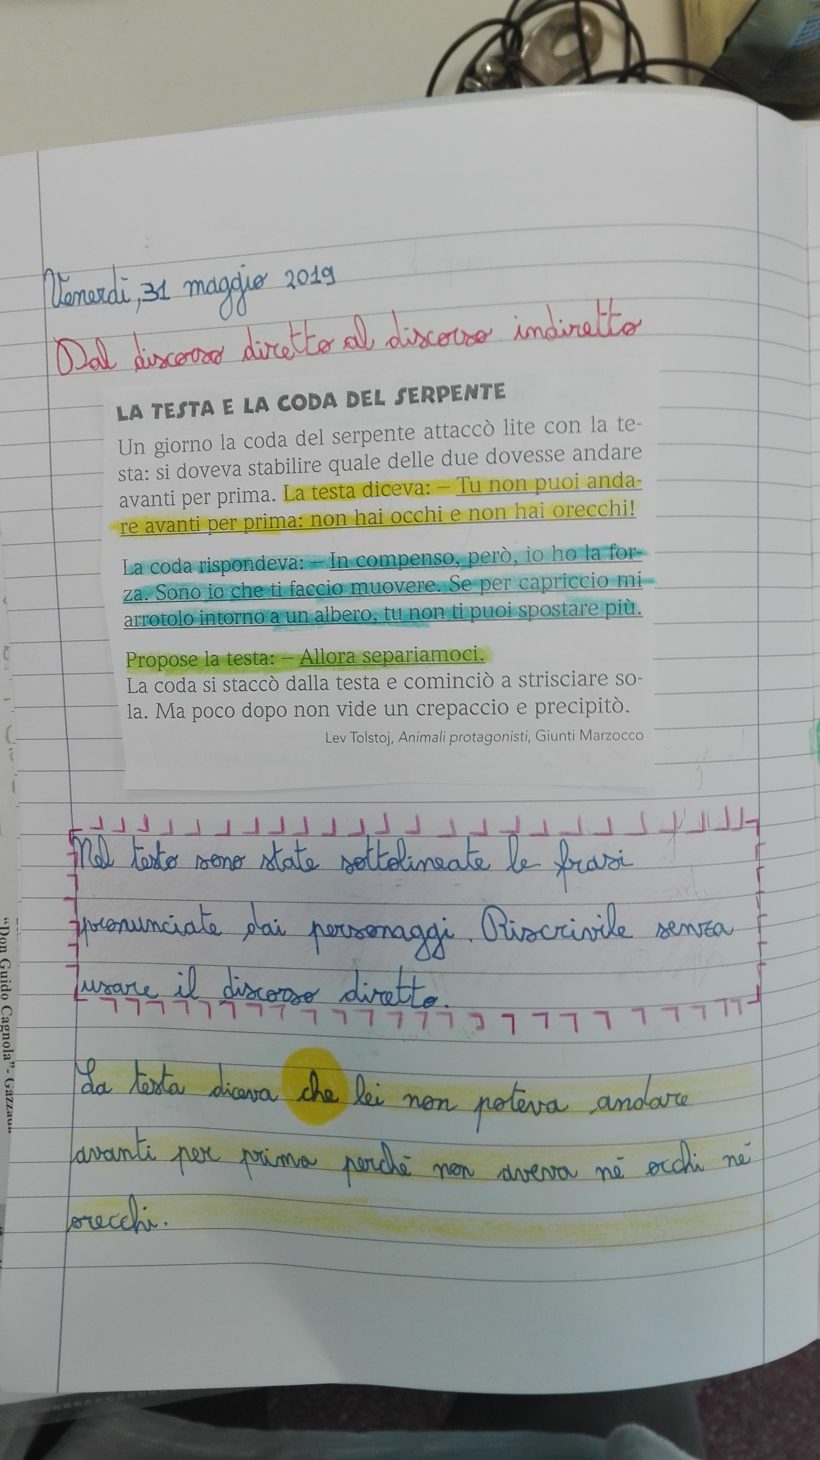 Venerdì, 31 maggio 2019
Dal discorso diretto al discorso indiretto
LA TESTA E LA CODA DEL SERPENTE
Un giorno la coda del serpente attaccò lite con la te-
sta: si doveva stabilire quale delle due dovesse andare
avanti per prima. La testa diceva: – Tu non puoi anda-
re avanti per prima: non hai occhi e non hai orecchi!
La coda rispondeva: – In compenso, però, io ho la for-
za. Sono io che ti faccio muovere. Se per capriccio mi
arrotolo intorno a un albero, tu non ti puoi spostare più.
Propose la testa: – Allora separiamoci.
La coda si staccò dalla testa e cominciò a strisciare so-
la. Ma poco dopo non vide un crepaccio e precipitò.
Lev Tolstoj, Animali protagonisti, Giunti Marzocco
Nel testo sono state sottolineate le frasi
pronunciate dai personaggi. Riscrivile senza
usare il discorso diretto.
La testa diceva che lei non poteva andare
avanti per prima perché non aveva né occhi né
orecchi.
"Don Guido Cagnola"- Gazzada